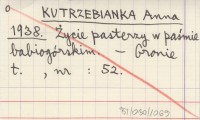 KUTRZEBIANKA Anna
1938. Życie pasterzy w paśmie
babiogórskim. — Gronie
t. , nr : 52.